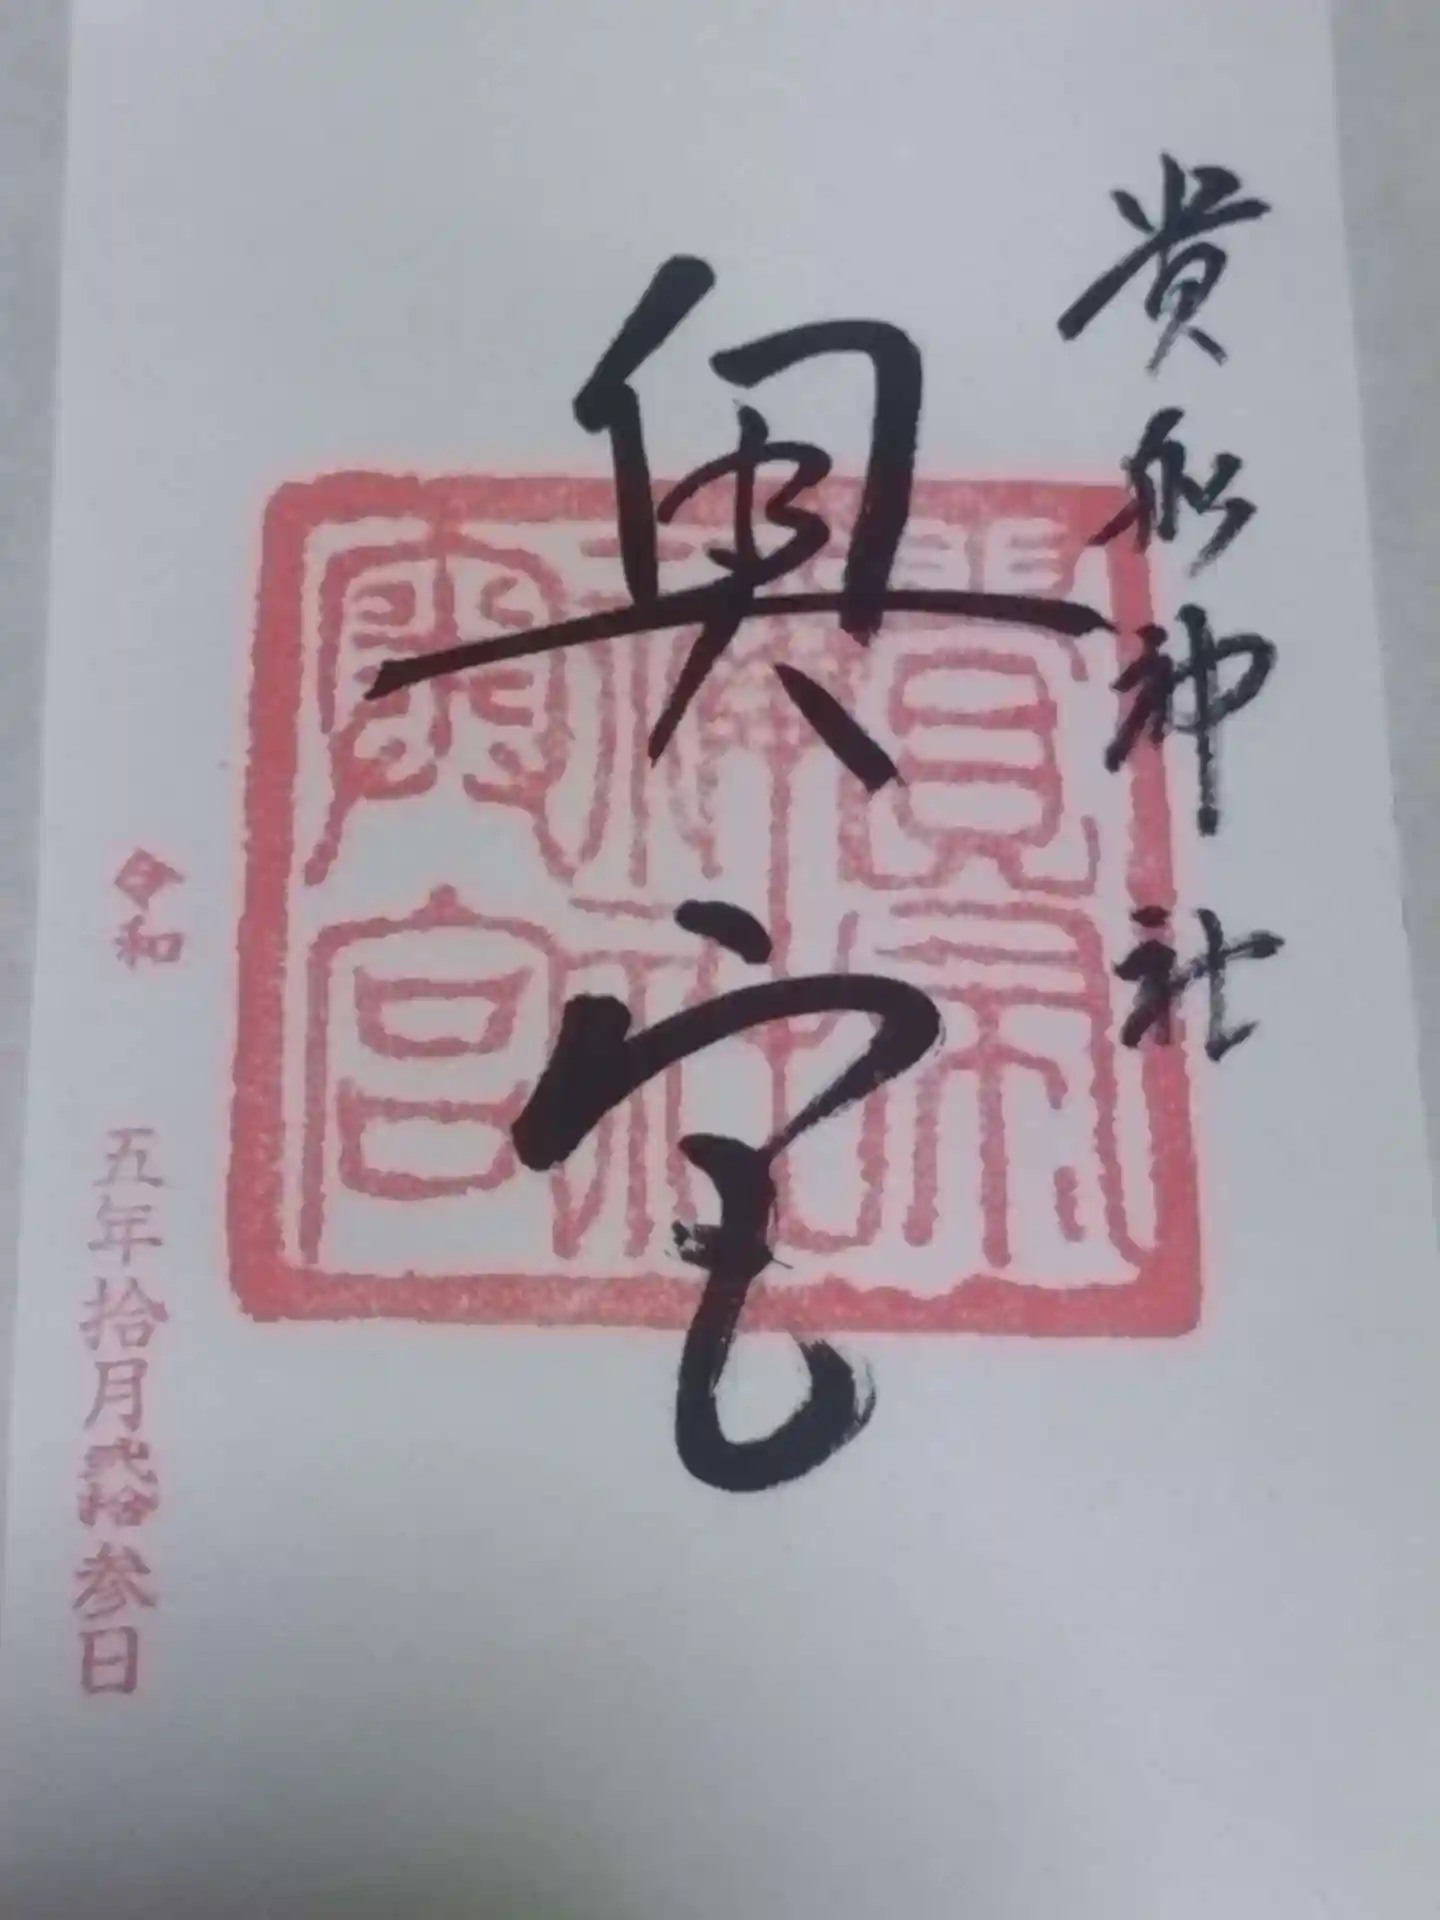 貴船神社
奥宮
貴布祢神社奥宮
令和 五年拾月弐拾参日